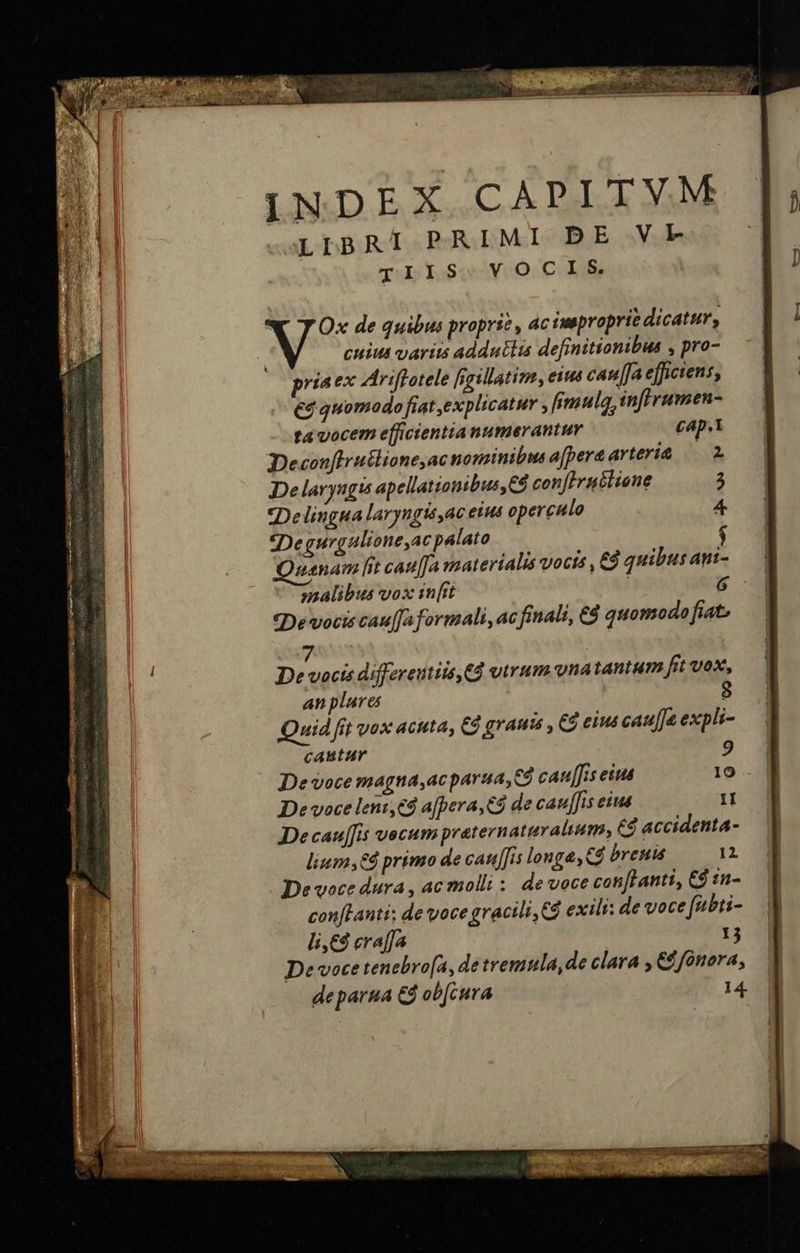 INDEX CAPITVM
LIBRI PRIMI DE VI-
TIIS VOCIS.
VOx de quibus propriè, ac impropriè dicatur,
cuius variis adductis definitionibus, pro-
pria ex Aristotele sigillatim, eius caussa efficiens,
& quomodo fiat, explicatur, simulq, instrumen-
ta vocem efficientia numerantur cap. 1
De constructione, ac nominibus aspera arteria 2
De laryngis apellationibus, & constructione 3
De lingua laryngis, ac eius operculo 4
De gurgulione, ac palato 5
Quænam sit caussa materialis vocis, & quibus ani-
malibus vox insit 6
De vocis caussa formali, ac finali, & quomodo fiat.
7
De vocis differentiis, & vtrum vna tantum sit vox,
an plures 8
Quid sit vox acuta, & grauis, & eius caussæ expli-
cantur 9
De voce magna, ac parua, & caussis eius 10
De voce leni, & aspera, & de caussis eius 11
De caussis vocum præternaturalium, & accidenta-
lium, & primo de caussis longæ, & breuis 12
De voce dura, ac molli: de voce constanti, & in-
constanti: de voce gracili, & exili: de voce subti-
li, & crassa 13
De voce tenebrosa, de tremula, de clara, & sonora,
de parua & obscura 14